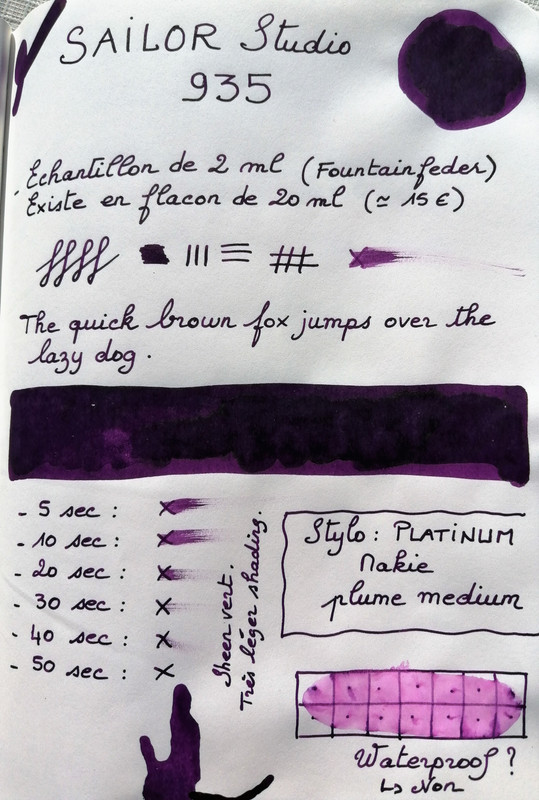 SAILOR Studio
935
Echantillon de 2 ml (Fountainfeder)
Existe en flacon de 20 ml (≃ 15 €)
The quick brown fox jumps over the
lazy dog.
- 5 sec :
- 10 sec :
- 20 sec :
- 30 sec :
- 40 sec :
- 50 sec :
Sheen vert.
Très léger shading.
Stylo : PLATINUM
Nakie
plume medium
Waterproof ?
↳ Non